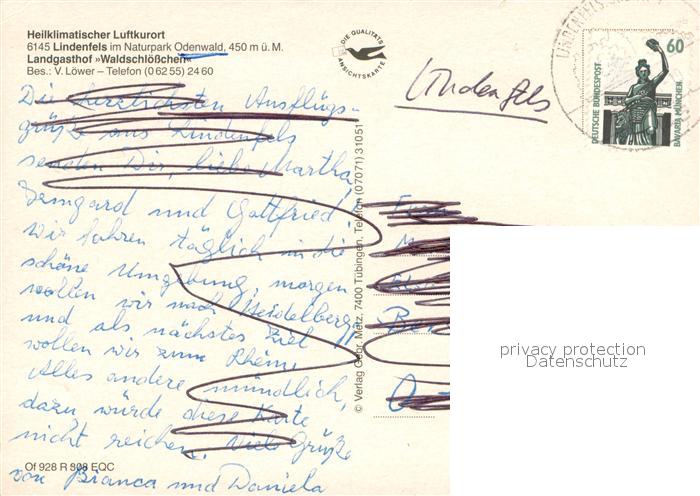 Heilklimatischer Luftkurort
6145 Lindenfels im Naturpark Odenwald, 450 m ü. M.
Landgasthof »Waldschlößchen«
Bes.: V. Löwer – Telefon (0 62 55) 24 60
DIE QUALITÄTS
ANSICHTSKARTE
Lindenfels
60
DEUTSCHE BUNDESPOST
BAVARIA MÜNCHEN
LINDENFELS
Die herzlichsten Ausflugs-
grüße aus Lindenfels
senden Dir, liebe Martha,
Irmgard und Gottfried!
Wir fahren täglich in die
schöne Umgebung, morgen
wollen wir nach Heidelberg
und als nächstes Ziel
wollen wir zum Rhein.
Alles andere mündlich,
dazu würde diese Karte
nicht reichen. Viele Grüße
von Bianca und Daniela
© Verlag Gebr. Metz, 7400 Tübingen, Telefon (07071) 31051
Of 928 R 808 EQC
privacy protection
Datenschutz